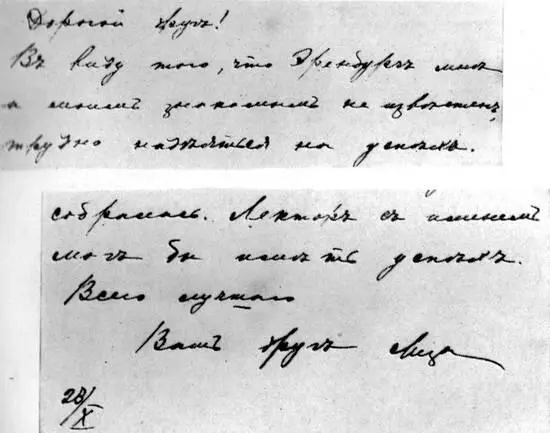 Дорогой другъ!
Въ виду того, что Эренбургъ мнѣ
и моимъ знакомымъ не извѣстенъ,
трудно надѣяться на успѣхъ.
собралась. Лекторъ съ именемъ
могъ бы имѣть успѣхъ.
Всего лучшаго
Вашъ другъ Лиза
28/X